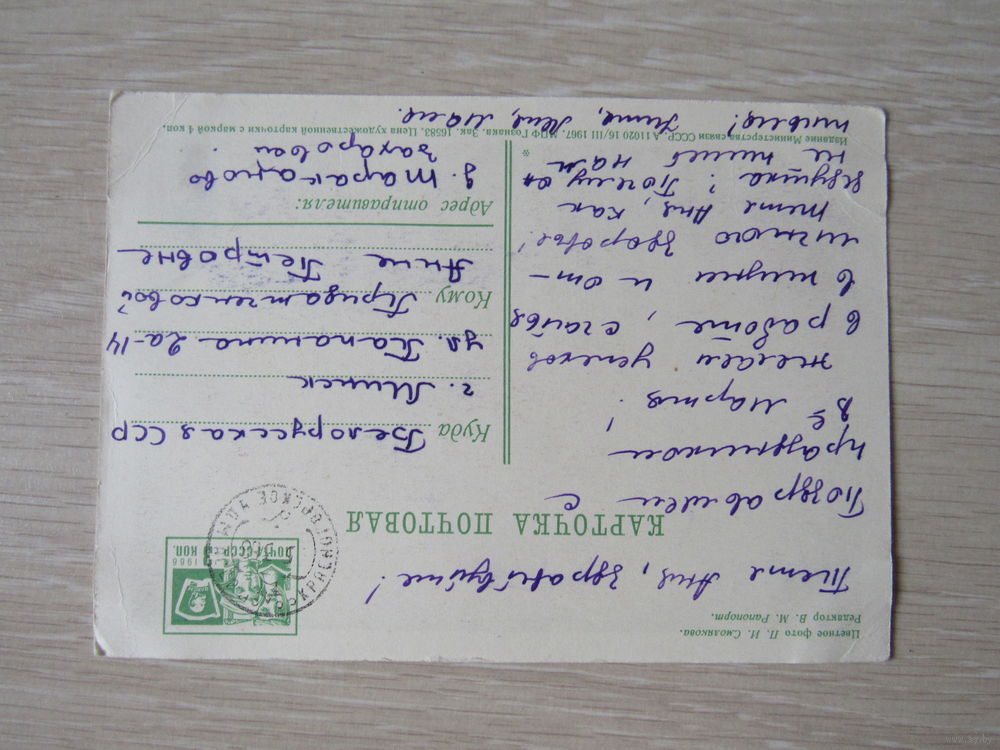 Цветное фото П. И. Смолякова.
Редактор В. М. Рапопорт.
Тетя Аня, здравствуйте!
КАРТОЧКА ПОЧТОВАЯ
ПОЧТА СССР 3 КОП.
1966
Поздравляем с
праздником
8 е Марта!
желаем успехов
в работе, счастья
в жизни и от-
личного здоровья!
Тетя Аня, как
дедушка? Почему он
не пишет нам
письма? Мая.
Куда Белорусская ССР
г. Минск
ул.
2а-14
Кому
Анне Петровне
Адрес отправителя:
Захаровы
Издание Министерства связи СССР. А 11020 16/III 1967. МПФ Гознака. Зак. 16583. Цена художественной карточки с маркой 4 коп.
www.ay.by